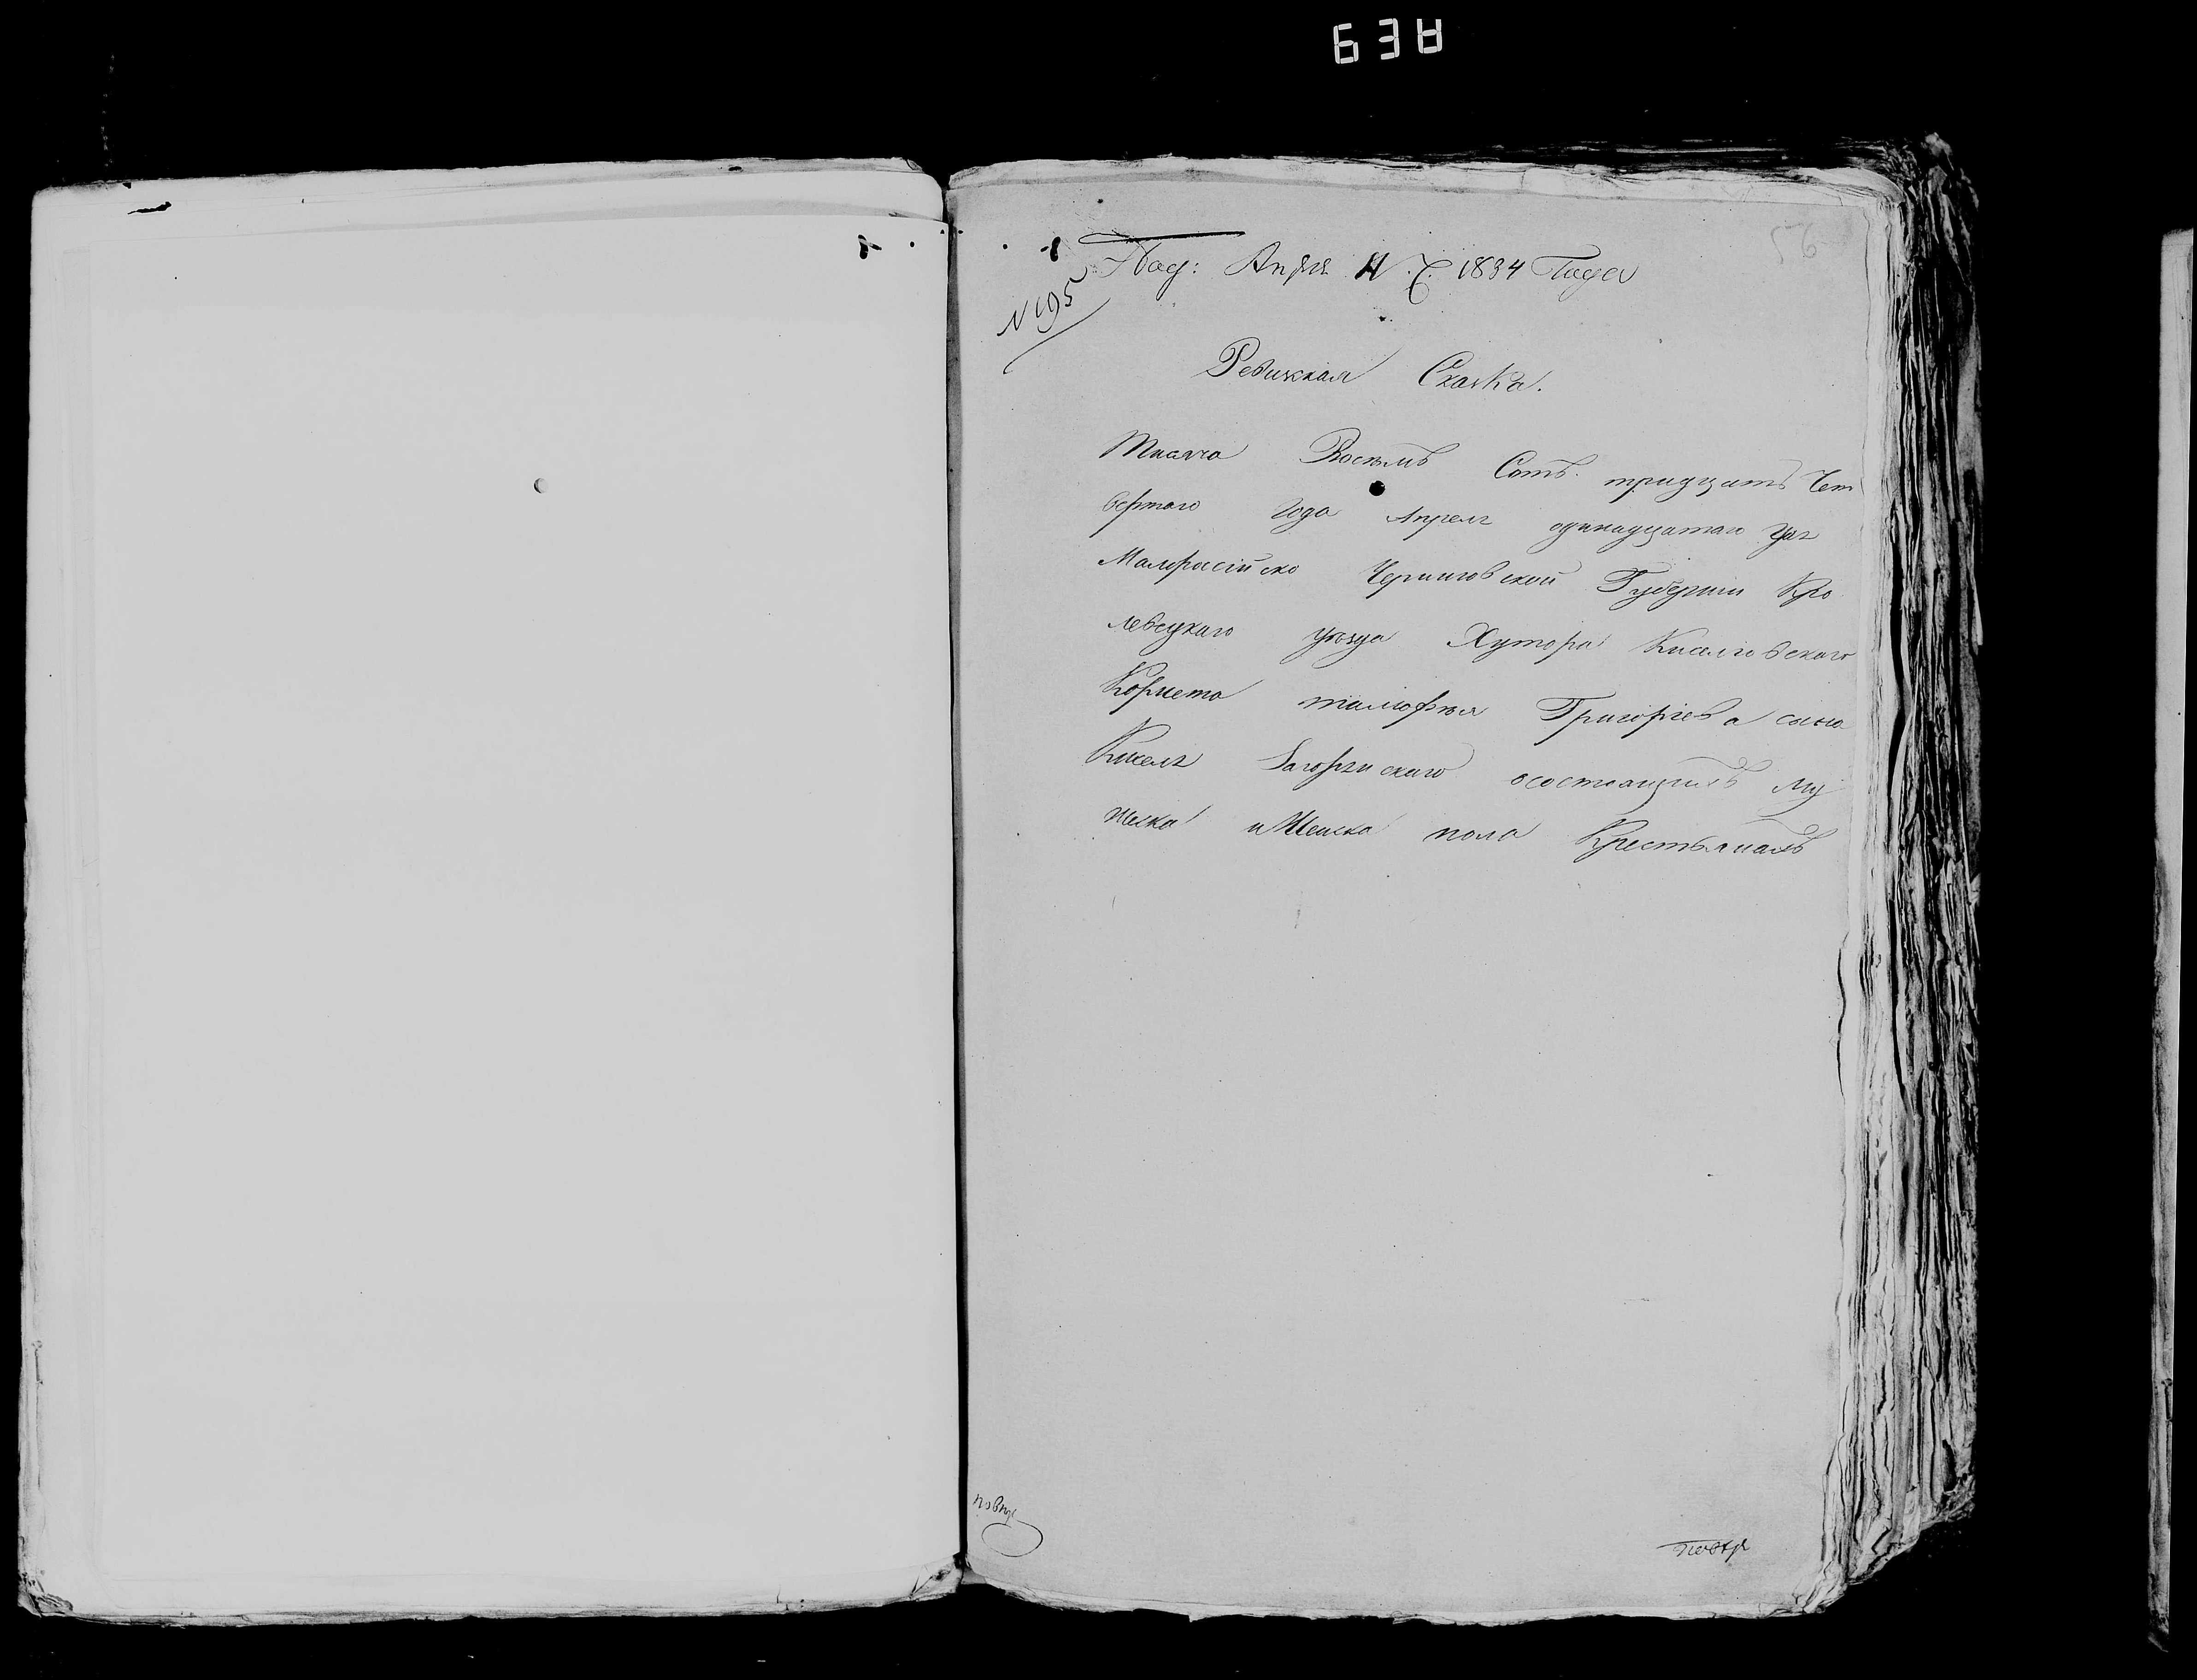 638
56
№ 195
Под: Апреля 11. ч. 1834 Года
Ревизкая Сказка.
Тисяча Восемь Сотъ тридцать Чет
вертаго Года Апреля одинадцатаго дня
Малоросійско Черниговской Губерніи Кро
левецкаго уезда Хутора Киселговскаго
Корнета Григоріева сина
Киселя осостоящихъ му
жеска и Женска пола Крестьянахъ